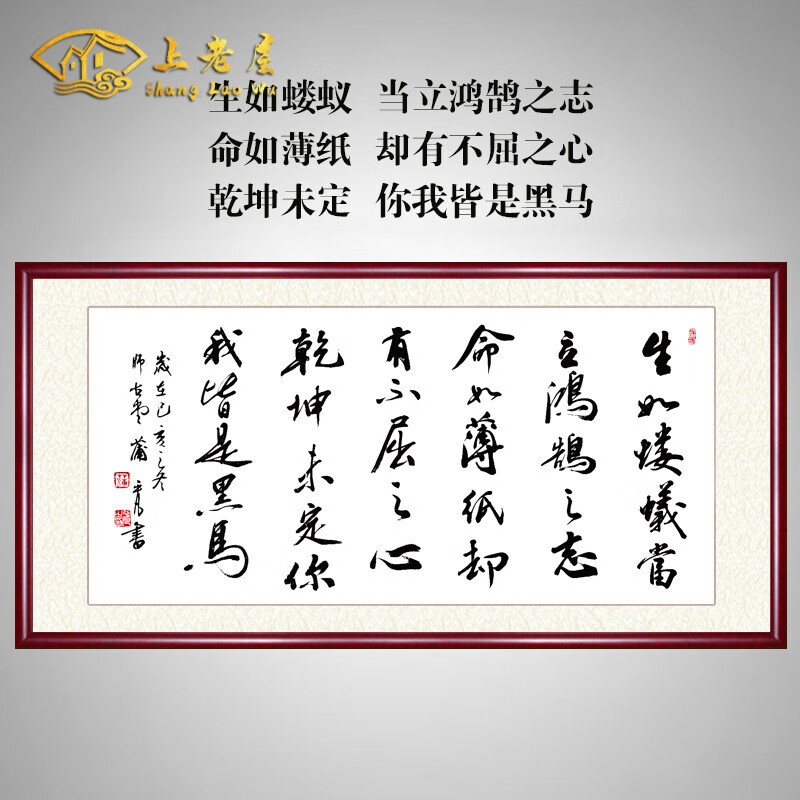 上老屋
Shang Lao Wu
生如蝼蚁 当立鸿鹄之志
命如薄纸 却有不屈之心
乾坤未定 你我皆是黑马
生如蝼蟻當
立鴻鵠之志
命如薄紙却
有不屈之心
乾坤未定你
我皆是黑馬
歲在己亥之冬
師古堂蒲
書